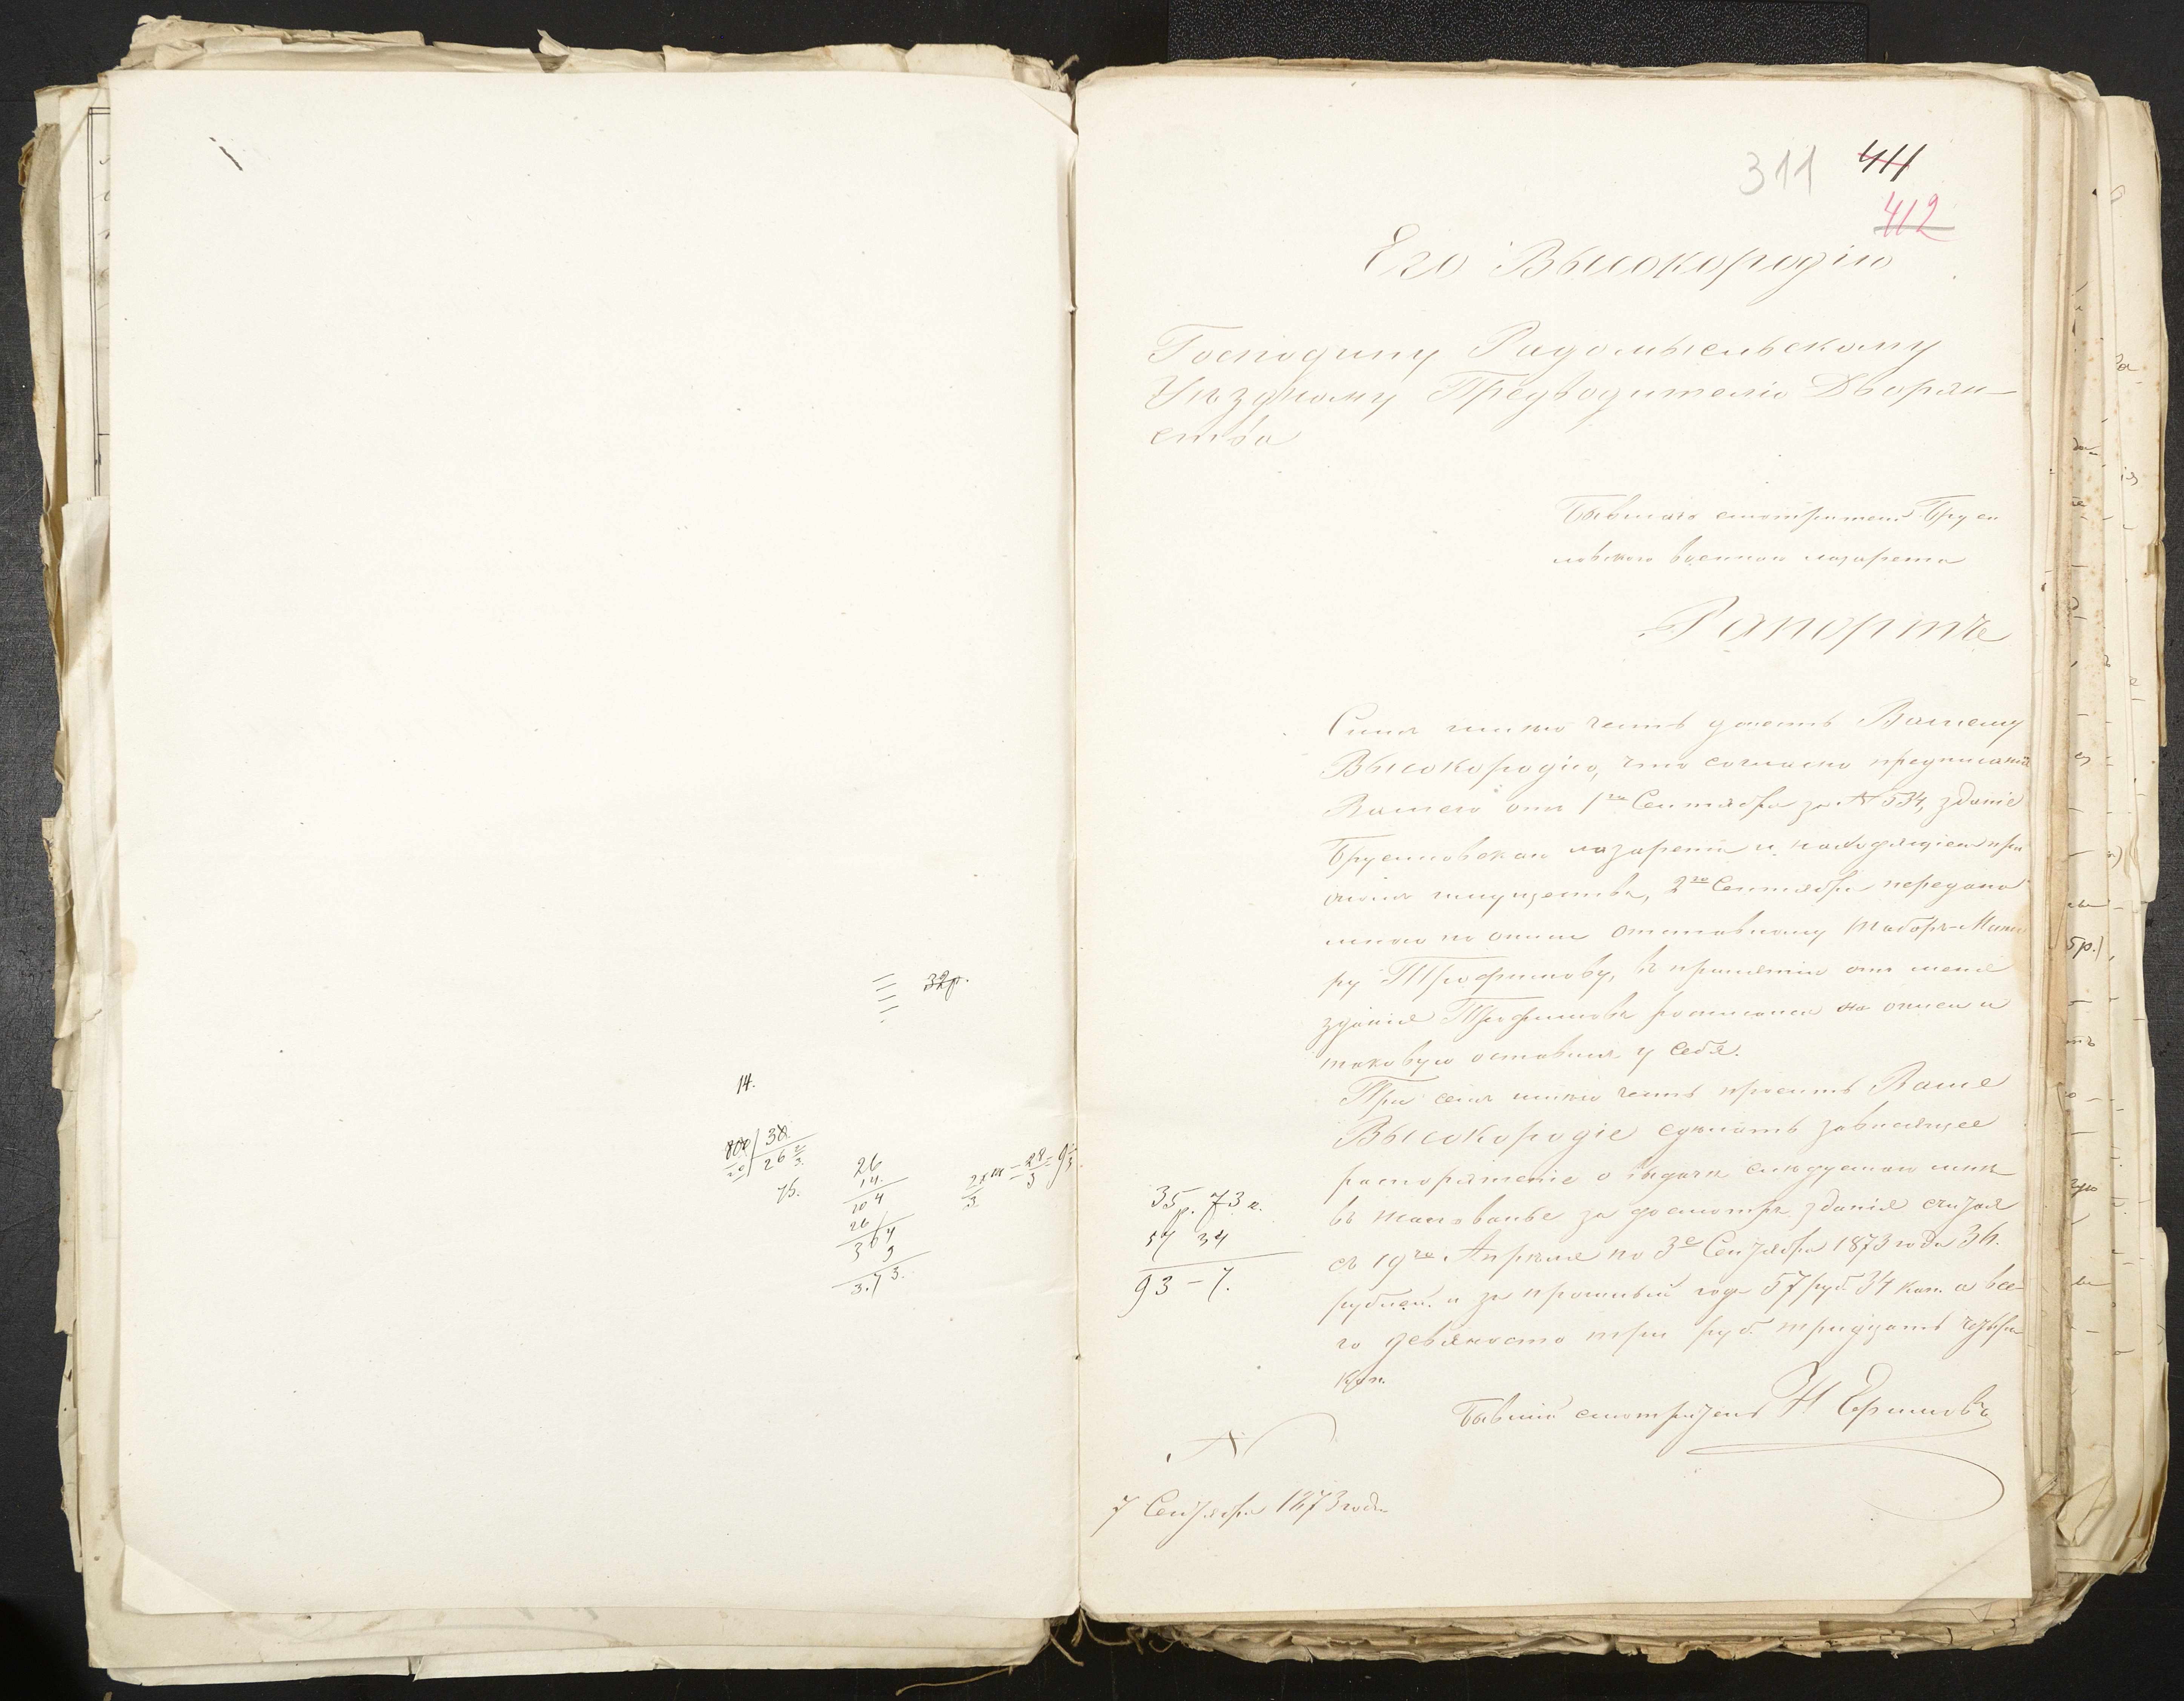 32р.
14.
800 | 30
20 26 2/3
75.
26
14.
104
26
364
9
3.73.
2/3 × 14 = 28/3 = 9 1/3
311 411
412
Его Высокородію
Господину Радомысльскому
Уѣздному Предводителю Дворян-
ства
Бывшаго смотрителя Бруси
ловскаго военнаго лазарета
Рапортъ
Симъ имѣю честь донесть Вашему
Высокородію, что согласно предписанія
Вашего отъ 1го Сентября за N 534, зданіе
Брусиловскаго лазарета и находящіеся при
ономъ имущества, 2го Сентября передано
мною по описи отставному Табор-
ру Трофимову, въ принятіи отъ меня
зданія Трофимовъ росписался на описи и
таковую оставилъ у себя.
При семъ имѣю честь просить Ваше
Высокородіе сдѣлать зависящее
распоряженіе о выдачѣ слѣдуемаго мнѣ
въ жалованье за досмотръ зданія считая
съ 19го Апрѣля по 3е Сентября 1873 года 36.
рублей. и за прошлый годъ 57 руб. 34 коп. а все-
го девяносто три руб. тридцать четыре
коп.
35р. 73 к.
57 34
93 – 7.
Бывшій смотритель Н Ермиловъ
N
7 Сентября 1873 года